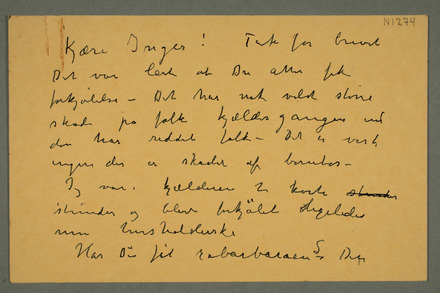 N1274
Kjære Inger! Tak for brevet
Det var leit at Du atter fik
forkjölelse – Det har nok voldt större
skade på folk kjældergangen end
den har reddet folk – Det er visst
ingen der er skadet af bomber –
Jeg var i kjelderen to korte
stunder og blev forkjölet ligeledes
min husholderske
Har Du fåt rabarbaraen? Det